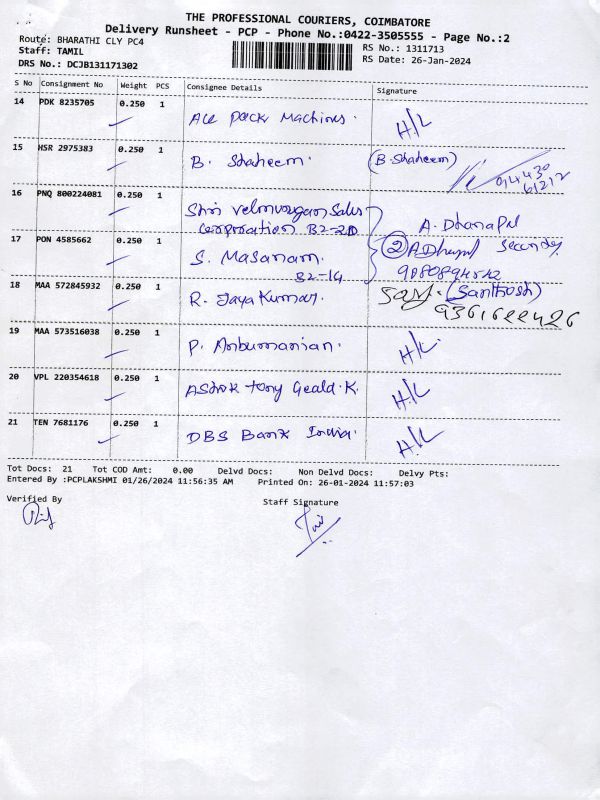 THE PROFESSIONAL COURIERS, COIMBATORE
Delivery Runsheet - PCP - Phone No.:0422-3505555 - Page No.:2
Route: BHARATHI CLY PC4
RS No.: 1311713
Staff: TAMIL
RS Date: 26-Jan-2024
DRS No.: DCJB131171302
S No Consignment No Weight PCS Consignee Details Signature
14 PDK 8235705 0.250 1 Ace Pack Machines. H/L
15 HSR 2975383 0.250 1 B. Shaheem. (B. Shaheem)
16 PNQ 800224081 0.250 1 Shri Velmurugan Sales A. Dhanapal
Corporation B2-2D
17 PON 4585662 0.250 1 S. Masanam. 2 Security
B2-14
18 MAA 572845932 0.250 1 R. Jaya Kumar. (Santhosh)
9361622426
19 MAA 573516038 0.250 1 P. Anbumanian. H/L
20 VPL 220354618 0.250 1 Ashok Tony Geald.K. H/L
21 TEN 7681176 0.250 1 DBS Bank India. H/L
Tot Docs: 21 Tot COD Amt: 0.00 Delvd Docs: Non Delvd Docs: Delvy Pts:
Entered By :PCPLAKSHMI 01/26/2024 11:56:35 AM Printed On: 26-01-2024 11:57:03
Verified By Staff Signature